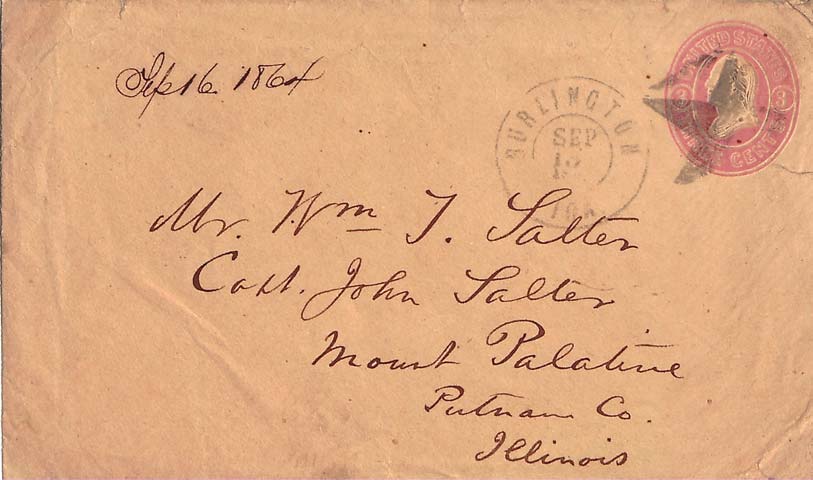 Sep 16 1864
UNITED STATES
3 3
THREE CENTS
BURLINGTON
SEP
IOA
Mr. Wm T. Salter
Capt. John Salter
Mount Palatine
Putnam Co.
Illinois